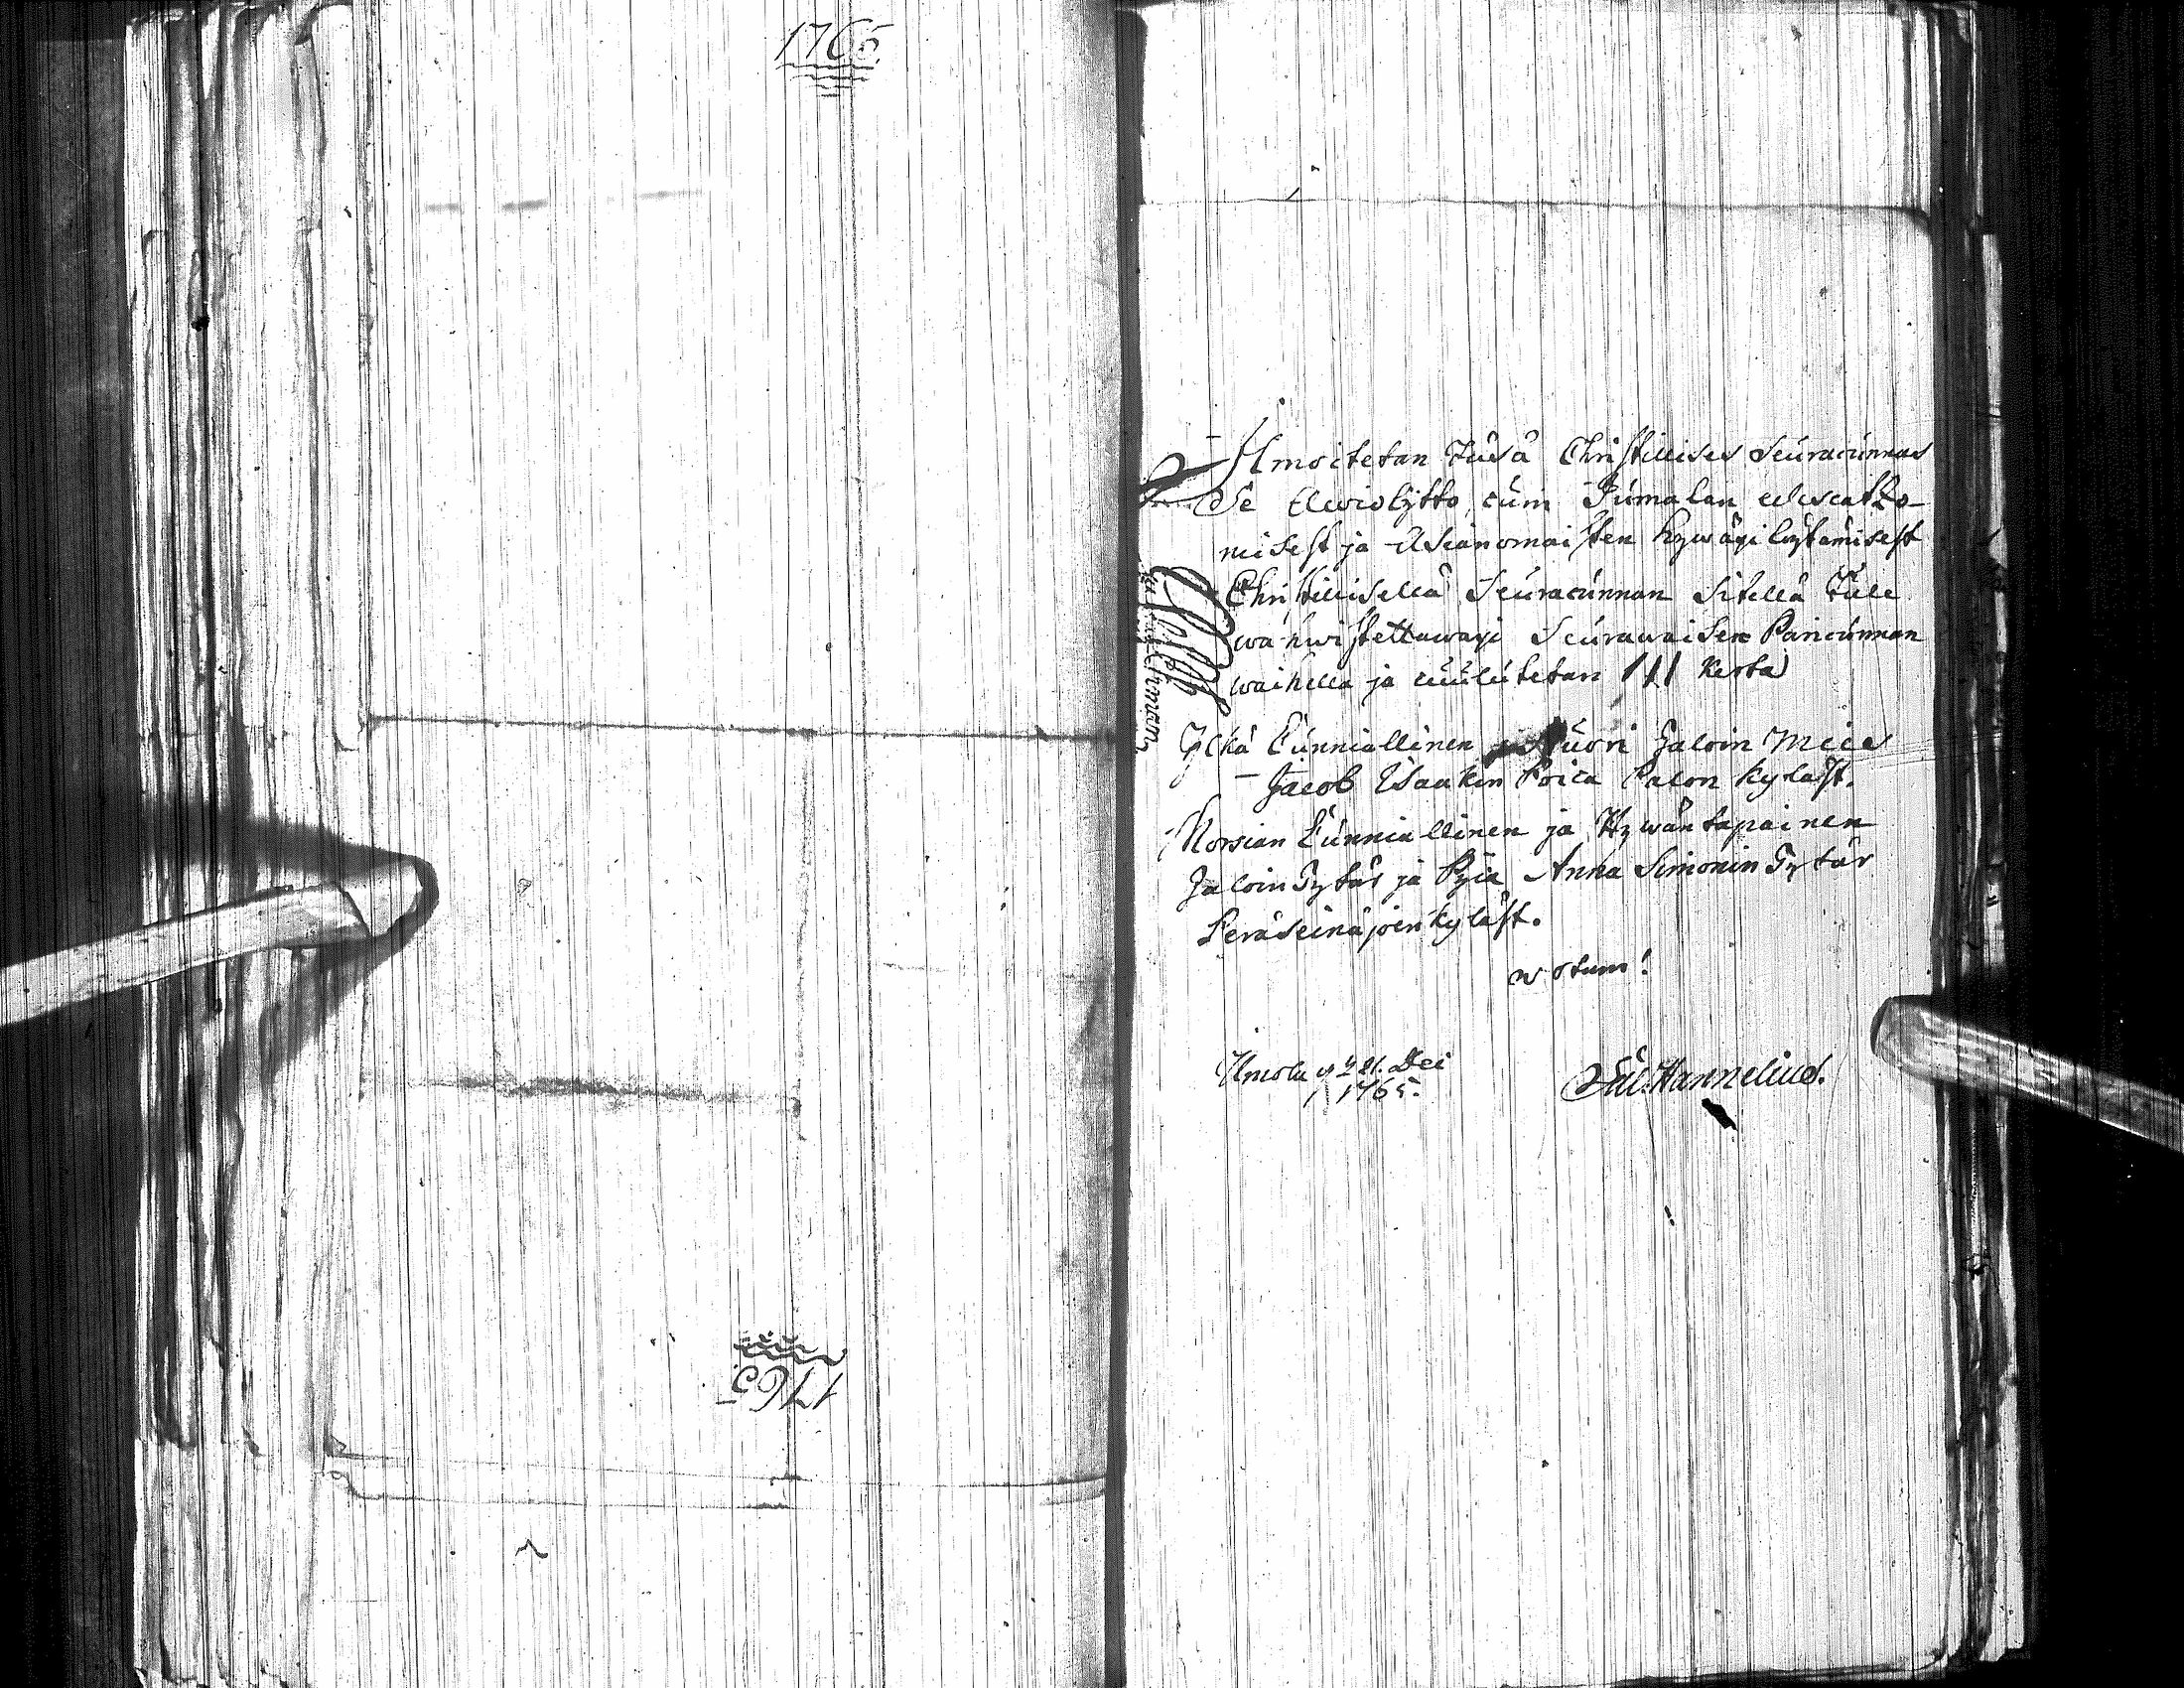 1765
1765
Ilmoitetan täsä Christillises Seuracunnas
Se Awioljtto, cuin Jumalan edescatzo-
misest ja Asianomaisten hywäxi löytämisest
Christillisellä Seuracunnan Sitellä Tule
wahwistettawaxi Seurawaisen Paricunnan
waihella ja cuulutetan III Kerta
Ylkä Cunniallinen ja Nuori Jaloin Mies
Jacob Isaakin Poica Palon kyläst.
Morsian Cunniallinen ja Hywäntapainen
Jaloin Tytär ja Pyia Anna Simonin Tytär
Peräseinäjoen kyläst.
wotum!
Ilmola d. 21. Dec
1765.
Hannelius.